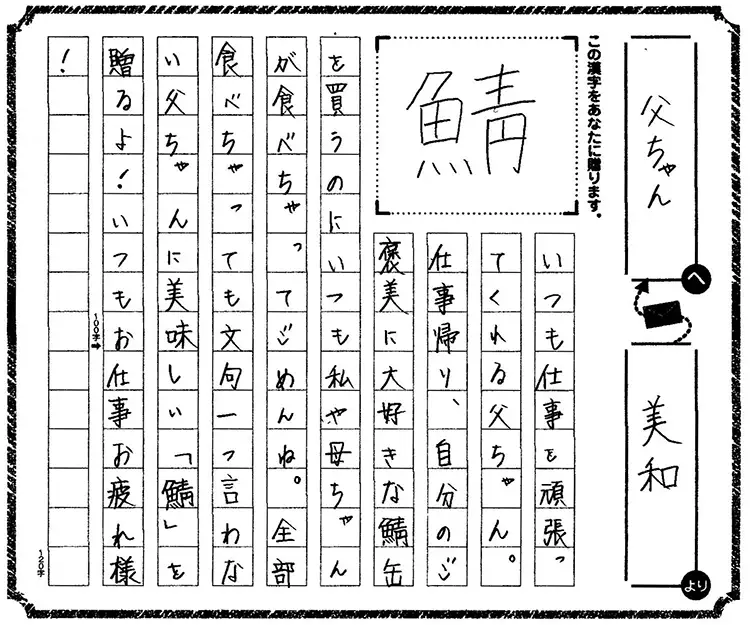 父ちゃん
へ
美和
より
この漢字をあなたに贈ります。
鯖
いつも仕事を頑張っ
てくれる父ちゃん。
仕事帰り、自分のご
褒美に大好きな鯖缶
を買うのにいつも私や母ちゃん
が食べちゃってごめんね。全部
食べちゃっても文句一つ言わな
い父ちゃんに美味しい「鯖」を
贈るよ!いつもお仕事お疲れ様
100字
!
120字